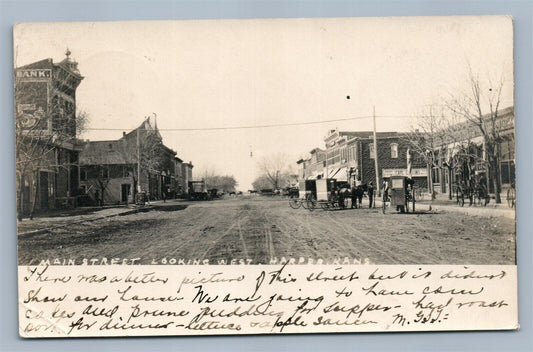 BANK
MAIN STREET LOOKING WEST. HARPER KANS
There was a better picture of this street but it didn't
show our house We are going to have corn
cakes and prune pudding for supper - had roast
pork for dinner - lettuce & apple sauce M.